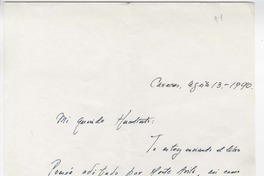 Caracas, agosto 13.-1990.
Mi querido Humberto:
Te estoy enviando el libro
Poesía editado por Monte Avila, así como